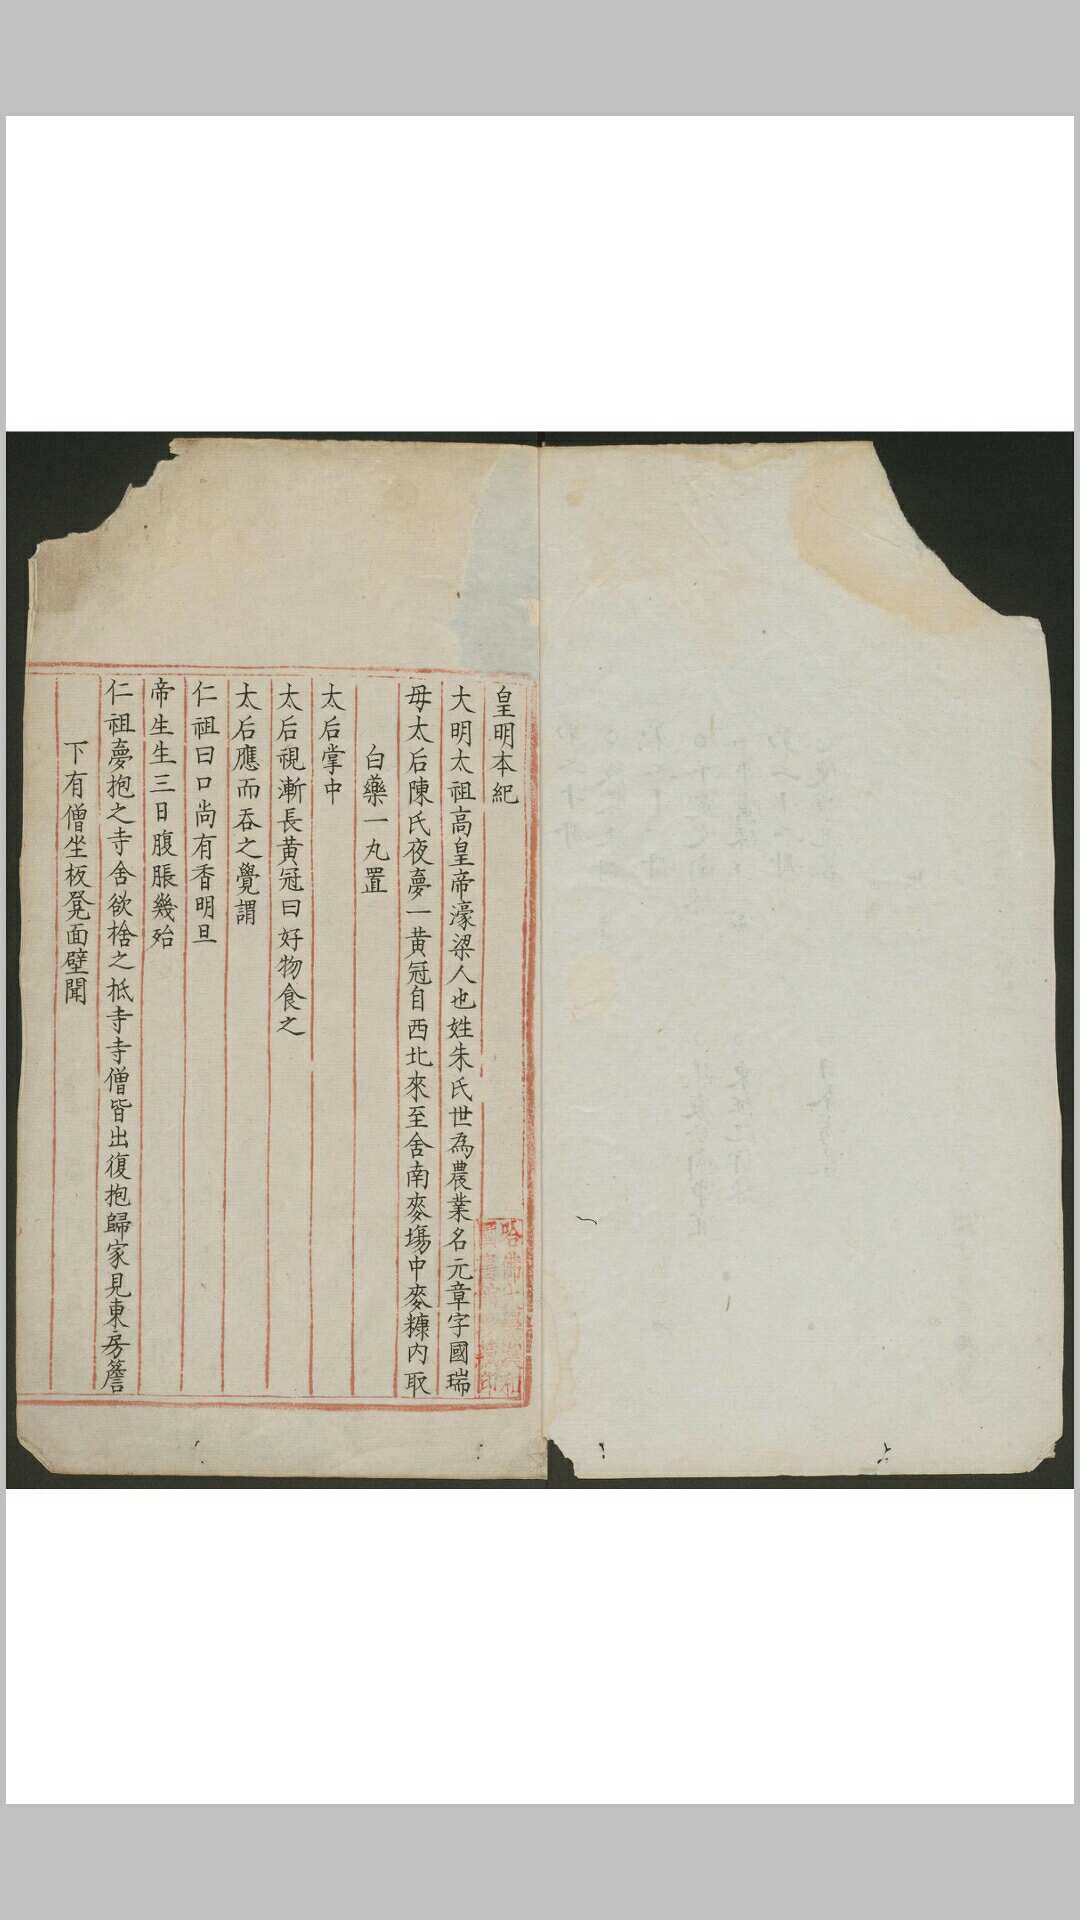 皇明本紀
大明太祖高皇帝濠梁人也姓朱氏世為農業名元章字國瑞
母太后陳氏夜夢一黃冠自西北來至舍南麥塲中麥糠內取
白藥一丸置
太后掌中
太后視漸長黃冠曰好物食之
太后應而吞之覺謂
仁祖曰口尚有香明旦
帝生生三日腹脹幾殆
仁祖夢抱之寺舍欲捨之柢寺寺僧皆出復抱歸家見東房簷
下有僧坐板凳面壁聞
哈佛大